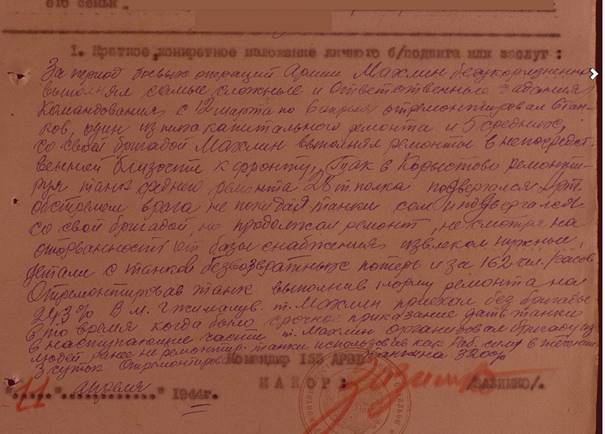 его семьи
1. Краткое, конкретное изложение личного б/подвига или заслуг:
За период боевых операций Армии Махлин безукоризненно
выполнял самые сложные и ответственные задания
Командования с 12 марта по 6 апреля отремонтировал 6 тан-
ков, один из них капитального ремонта и 5 средних,
со своей бригадой Махлин выполнял ремонты в непосредст-
венной близости к фронту. Так в ремонти-
руя танк среднего ремонта полка подвергался арт.
обстрелам врага не покидая танки сам подвергался
со своей бригадой, но продолжал ремонт, не смотря на
оторванность от базы снабжения извлекал нужные
детали с танков безвозвратных потерь и за 162 чел./часов
Отремонтировав танк выполнив норму ремонта на
243% В м. т. Махлин поехал без бригады
в то время когда было срочное приказание дать танки
в наступающие части т. Махлин организовал бригаду из
людей ранее не ремонтир. танки использовав как раб. силу в течении
3 суток Отремонтировал танка на 320%
Командир 155 АРВБ
МАЙОР: /ЗАЗИМКО/.
"11" апреля 1944г.